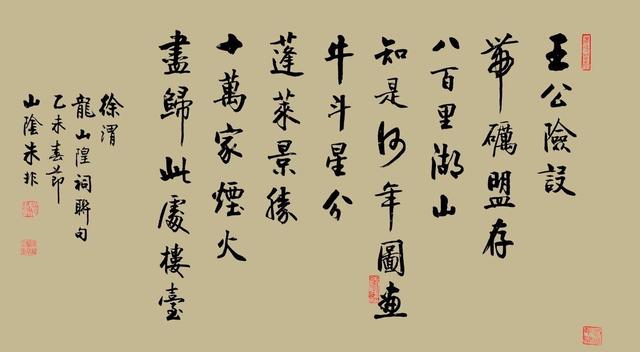 王公險設
帶礪盟存
八百里湖山
知是何年圖畫
牛斗星分
蓬萊景勝
十萬家煙火
盡歸此處樓臺
徐渭
龍山隍祠聯句
乙未春節
山陰朱非